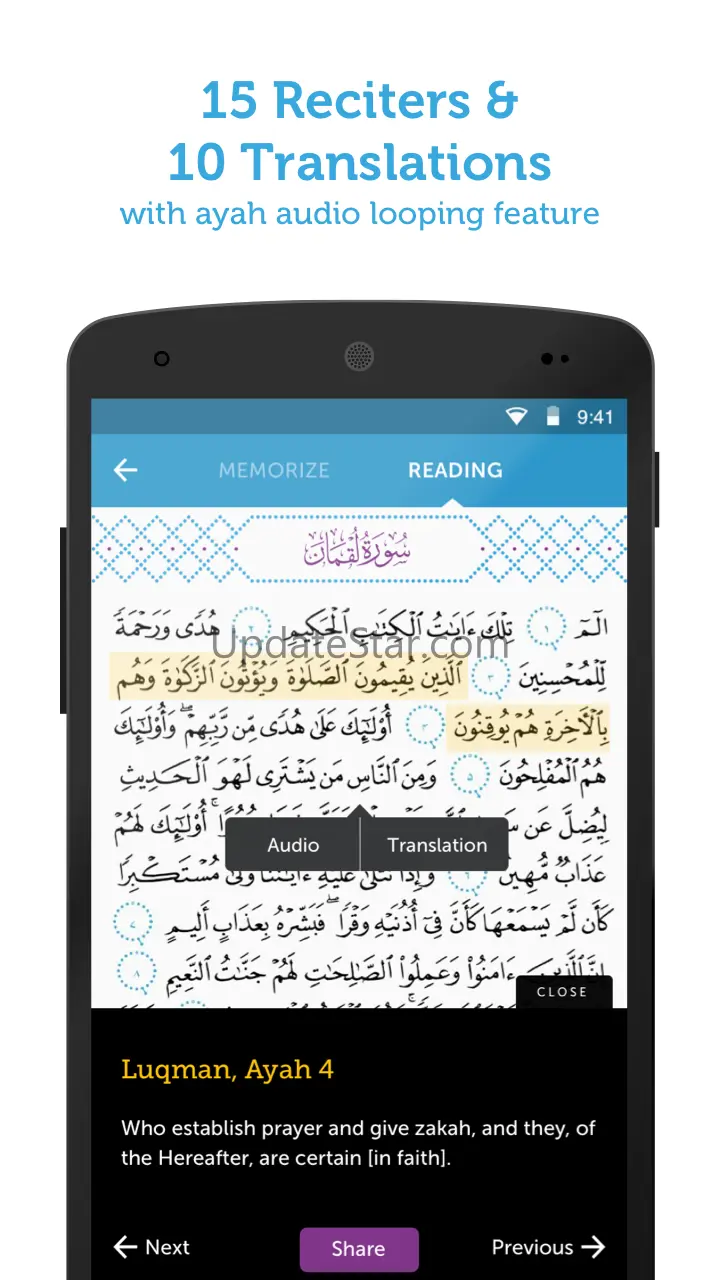 15 Reciters &
10 Translations
with ayah audio looping feature
9:41
MEMORIZE
READING
سُورَةُ لُقْمَانَ
الٓمٓ ١ تِلْكَ ءَايَٰتُ ٱلْكِتَٰبِ ٱلْحَكِيمِ ٢ هُدًى وَرَحْمَةً
UpdateStar.com
لِّلْمُحْسِنِينَ ٣ ٱلَّذِينَ يُقِيمُونَ ٱلصَّلَوٰةَ وَيُؤْتُونَ ٱلزَّكَوٰةَ وَهُم
بِٱلْأٓخِرَةِ هُمْ يُوقِنُونَ ٣ أُو۟لَٰٓئِكَ عَلَىٰ هُدًى مِّن رَّبِّهِمْ ۖ وَأُو۟لَٰٓئِكَ
هُمُ ٱلْمُفْلِحُونَ ٥ وَمِنَ ٱلنَّاسِ مَن يَشْتَرِى لَهْوَ ٱلْحَدِيثِ
لِيُضِلَّ عَن أُو۟لَٰٓئِكَ لَهُمْ
Audio
Translation
عَذَابٌ مُّهِينٌ ٦ وَإِذَا تُتْلَىٰ عَلَيْهِ ءَايَٰتُنَا وَلَّىٰ مُسْتَكْبِرًا
كَأَن لَّمْ يَسْمَعْهَا كَأَنَّ فِىٓ أُذُنَيْهِ وَقْرًا ۖ فَبَشِّرْهُ بِعَذَابٍ أَلِيمٍ ٧
إِنَّ ٱلَّذِينَ ءَامَنُوا۟ وَعَمِلُوا۟ ٱلصَّٰلِحَٰتِ لَهُمْ جَنَّٰتُ ٱلنَّعِيمِ ٨
CLOSE
Luqman, Ayah 4
Who establish prayer and give zakah, and they, of
the Hereafter, are certain [in faith].
Next
Share
Previous